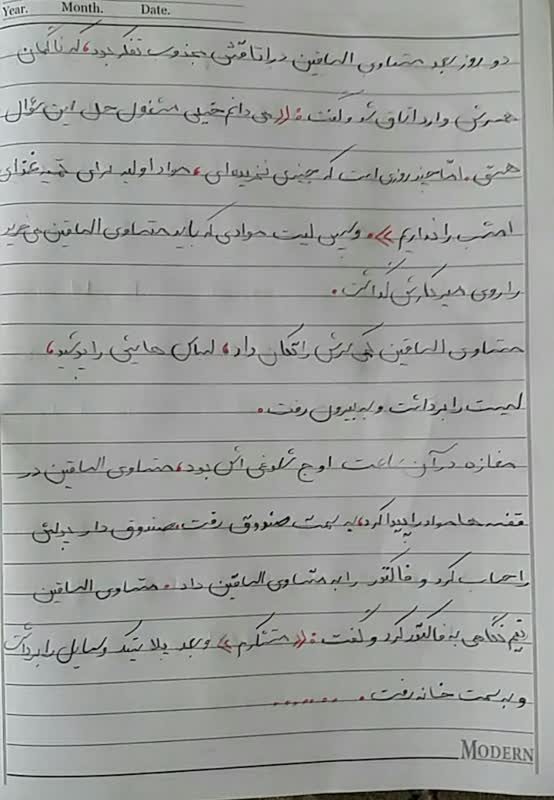 Year. Month. Date.
دو روز بعد متساوی الساقین در اتاقش مجذوب تفکر بود، که ناگهان
همسرش وارد اتاق شد و گفت: «می دانم خیلی مشغول حل این سؤال
هستی. امّا چند روزی است که چیزی نخریده‌ای، مواد اولیه برای تهیه غذای
امشب را نداریم». و سپس لیست موادی که باید متساوی الساقین می خرید
را روی میز کارش گذاشت.
متساوی الساقین کمی سرش را تکان داد، لباس هایش را پوشید،
لیست را برداشت و به بیرون رفت.
مغازه در آن ساعت اوج شلوغی اش بود، متساوی الساقین در
قفسه ها مواد را پیدا کرد، به سمت صندوق رفت، صندوق دار پولش
را حساب کرد و فاکتور را به متساوی الساقین داد. متساوی الساقین
نیم نگاهی به فاکتور کرد و گفت: «متشکرم» و بعد پلاستیک وسایل را برداشت
و به سمت خانه رفت.......
MODERN